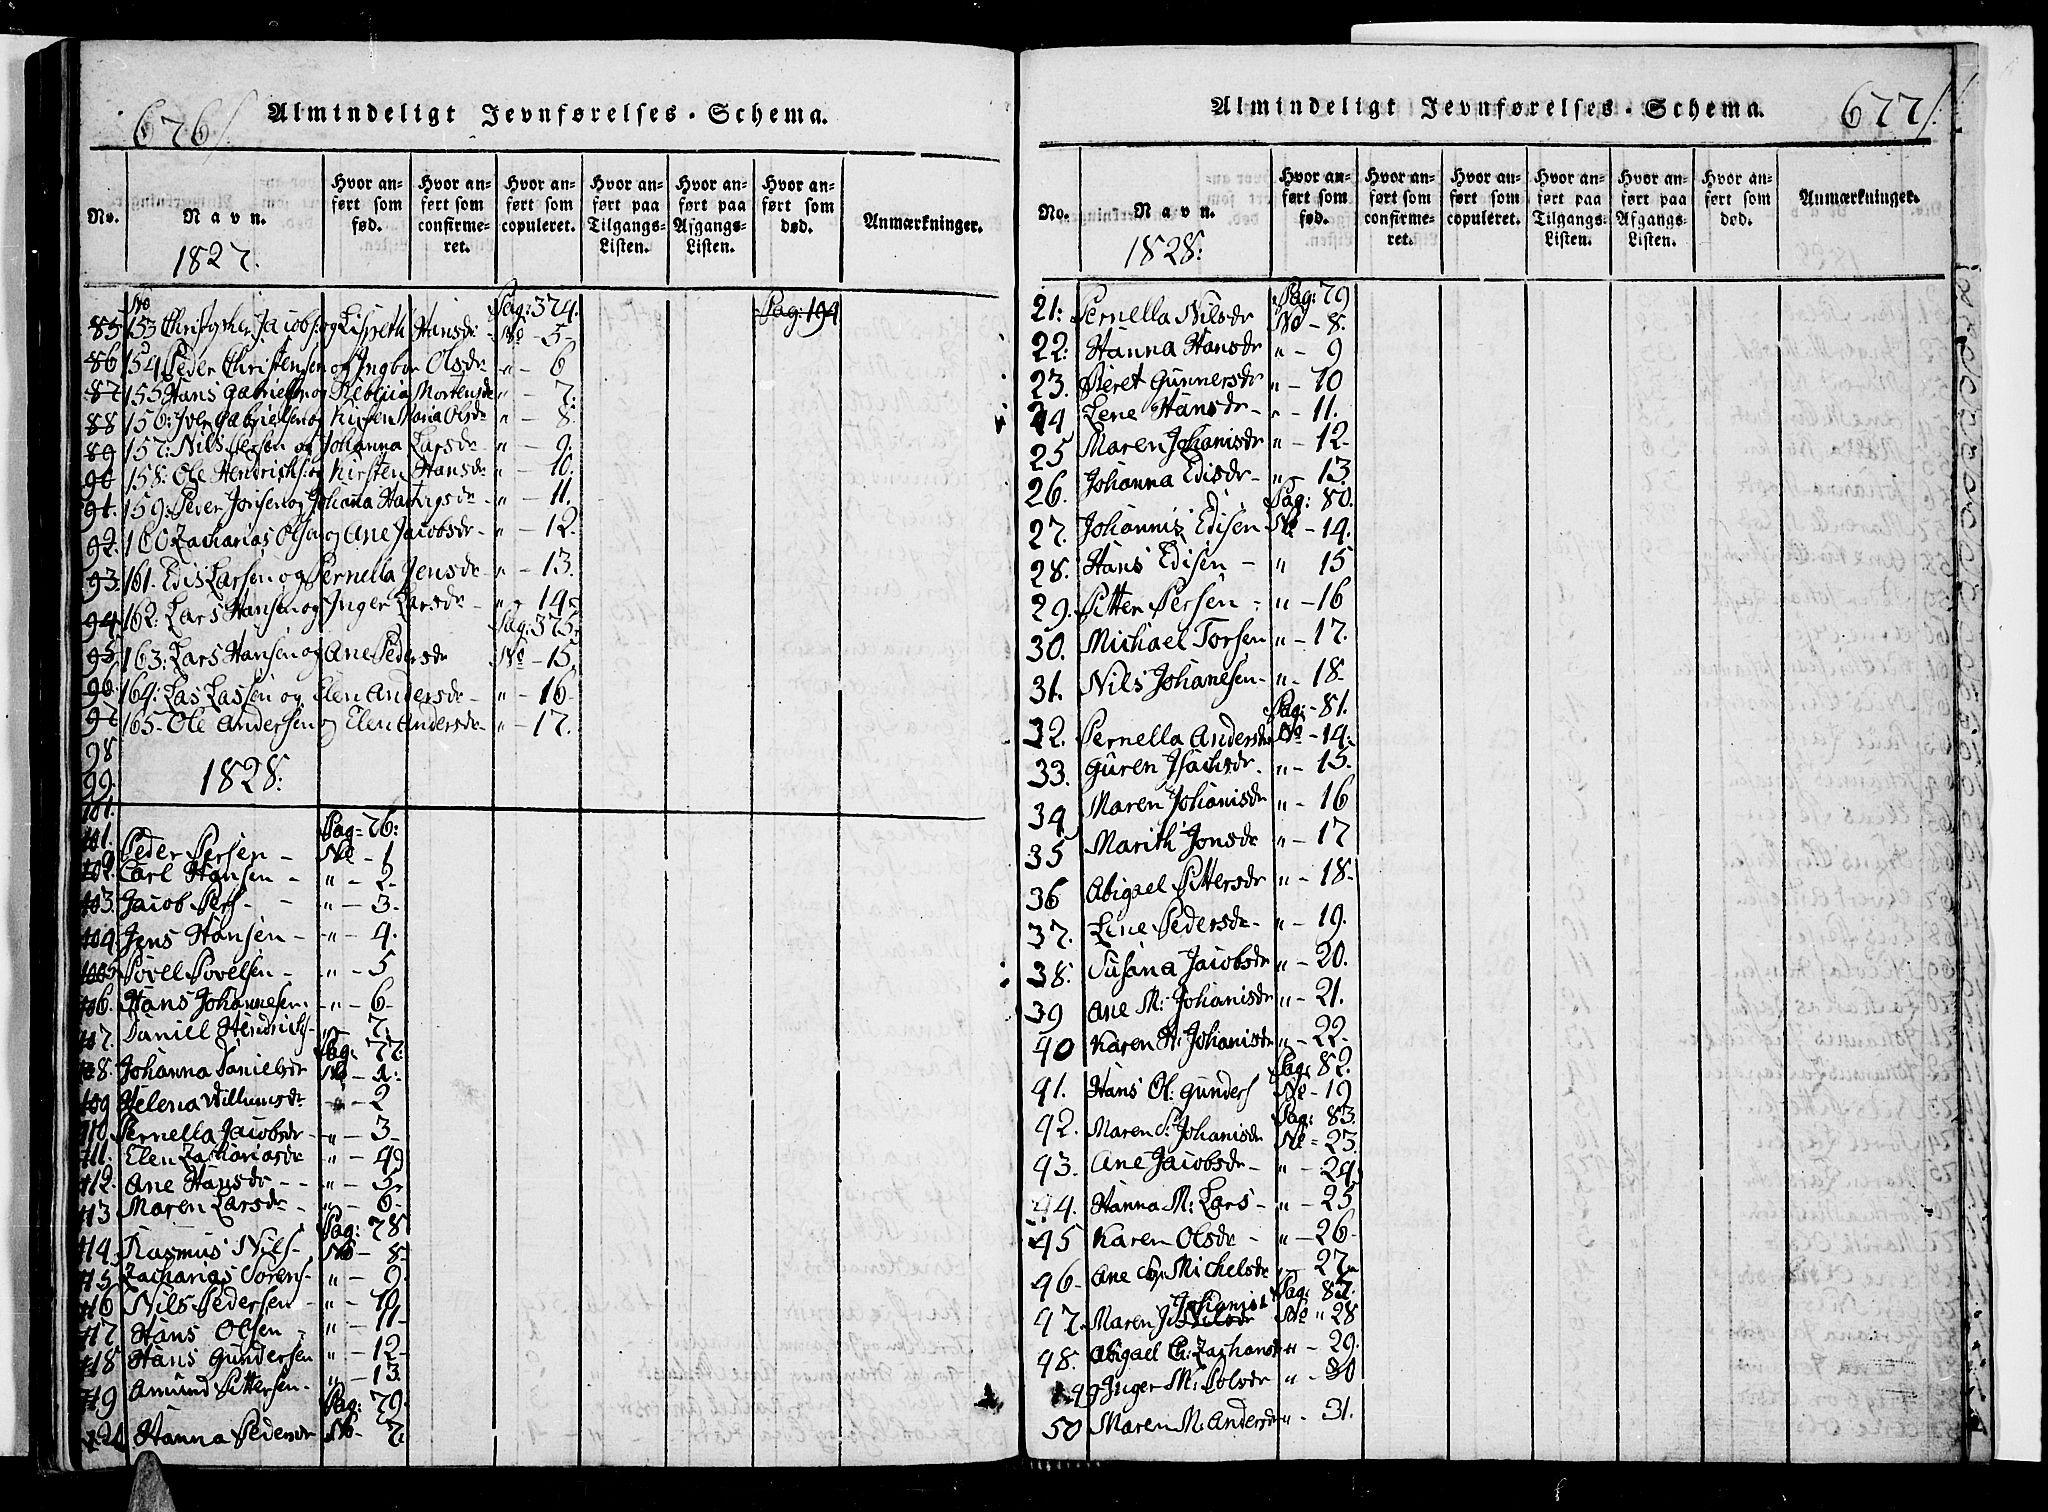 676/.
Almindeligt Jevnførelses-Schema.
No.
Navn.
1827.
Hvor anført som fød.
Hvor anført som confirmeret.
Hvor anført som copuleret.
Hvor anført paa Tilgangs-Listen.
Hvor anført paa Afgangs-Listen.
Hvor anført som død.
Anmærkninger.
No Pag: 374. Pag: 194
85 153 Christopher Jacobs: og Lisbeth Hansdr No - 5-
86 154 Peder Christensen og Ingbor Olsdr " - 6
87 155 Hans Gabrielsen og Mortensdr " - 7:
88 156: Iver Gabrielsen og Kirsten Maria Olsdr " - 8
89 157: Nils Persen og Johanna Larsdr " - 9.
90 158: Ole Hendrichs: og Kirsten Hansdr " - 10.
91. 159: Peder og Johana " - 11.
92. 160 Zacharias Olsen og Ane Jacobsdr - " - 12.
93. 161. Edis Larsen og Pernella Jensdr - " - 13.
94. 162: Lars Hansen og Inger Larsdr - " - 14.
Pag: 375.
95 163: Lars Hansen og Ane Pedersdr No - 15.
96 164: Las Lassen og Elen Andersdr - " - 16-
97 165- Ole Andersen og Elen Andersdr - " - 17.
98
99. 1828:
101.
Pag: 76:
101. Peder Persen - No - 1
102. Carl Hansen - " - 2-
103. Jacob Pers - " - 3-
104. Jens Hansen - " - 4.
105 Povel Povelsen - " - 5
106. Hans Johannesen. - " - 6-
107. Daniell Hendrichs " - 7.
Pag: 77:
108. Johanna Danielsdr No - 1:
109 Helena Willumsdr " - 2
110. Pernella Jacobsdr - " - 3-
111. Elen Zachariasdr " - 4
112. Ane Hansdr - - " - 5
113 Maren Larsdr - " - 6-
Pag: 78
114. Rasmus Nils- No - 8
115. Zacharias Sorens- " - 9.
116 Nils Pedersen - " - 10
117 Hans Olsen - " - 11-
118 Hans Gundersen " - 12-
119 Amund Pittersen - " - 13.
Pag: 79.
Hanna Pedersdr No - 7.
Almindeligt Jevnførelses-Schema.
677/.
No.
Navn.
1828.
Hvor anført som fød.
Hvor anført som confirmeret.
Hvor anført som copuleret.
Hvor anført paa Tilgangs-Listen.
Hvor anført paa Afgangs-Listen.
Hvor anført som død.
Anmærkninger.
Pag: 79
21: Pernella Nilsdr No - 8.
22: Hanna Hansdr " - 9
23. Beret Gunnersdr " - 10
24 Lene Hansdr - " - 11.
25 Maren Johanisdr " - 12-
26. Johanna Edisdr - " - 13.
Pag: 80.
27. Johannis Edisen No - 14.
28. Hans Edisen - " 15
29. Pitter Persen - " - 16
30. Michael Torsen " - 17.
31. Nils Johanesen - " - 18-
Pag: - 81.
32. Pernella Andersdr No - 14.
33. Guren Isachsdr. " - 15.
34 Maren Johanisdr " - 16
35 Marith Jonsdr " - 17
36 Abigael Pittersdr " - 18-
37. Line Pedersdr - " - 19.
38. Susana Jacobsdr " - 20.
39 Ane M: Johanisdr " - 21.
40 Karen H: Johanisdr " - 22-
Pag: 82.
41. Hans Ol: Gunders No - 19
Pag: 83.
42. Maren S: Johanisdr No - 23.
43. Ane Jacobsdr - " - 24
44. Hanna M: Lars - " - 25
45 Karen Olsdr - " - 26-
46- Ane Michelsdr " - 27-
Johanis Pag:
47. Maren J: Nilsdr No " 28
48. Abigael Ch: Zachariasdr " - 29.
49 Inger M: Polsdr " - 30
50 Maren M: Andersdr " - 31.